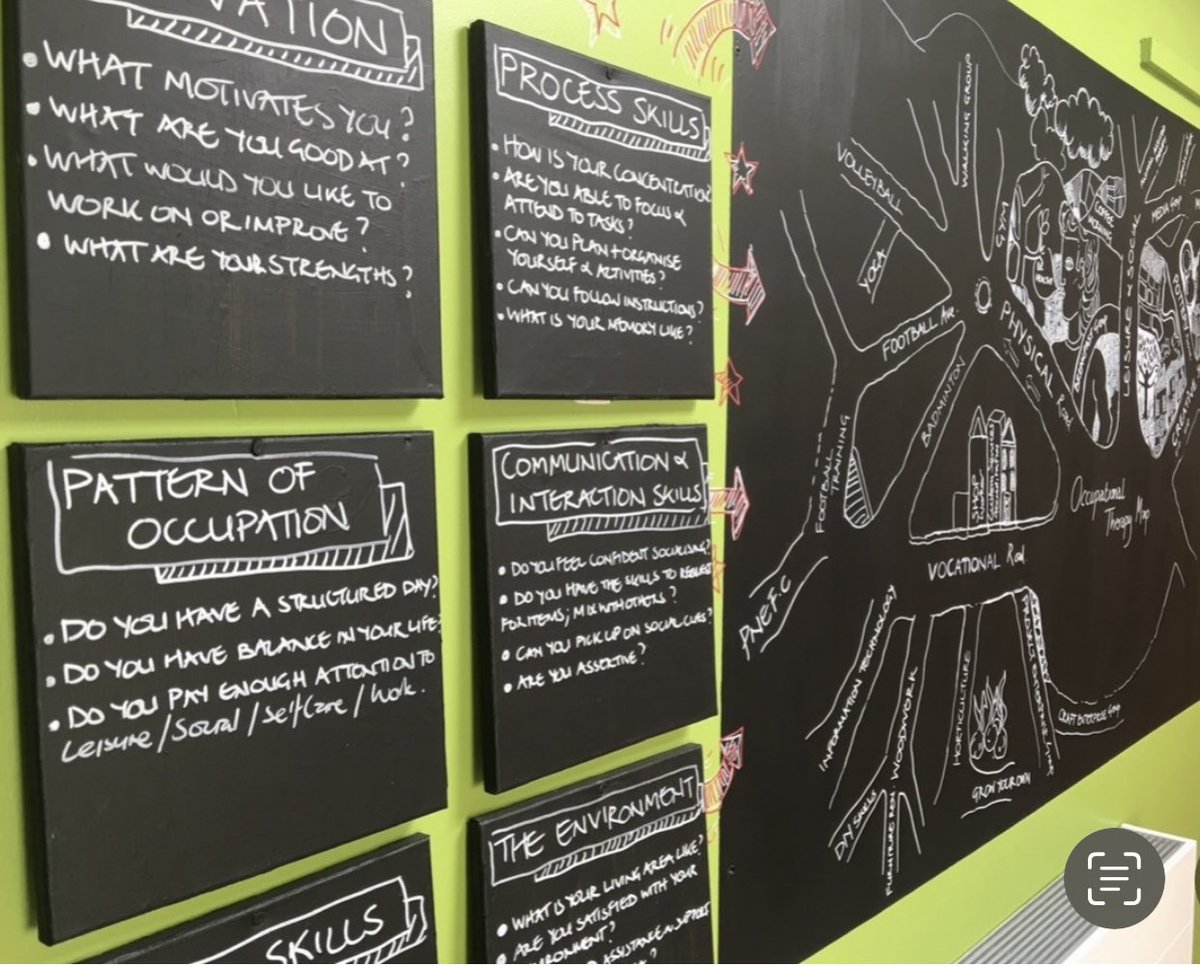 VATION
• WHAT MOTIVATES YOU?
• WHAT ARE YOU GOOD AT?
• WHAT WOULD YOU LIKE TO
WORK ON OR IMPROVE?
• WHAT ARE YOUR STRENGTHS?
PROCESS SKILLS
• HOW IS YOUR CONCENTRATION?
• ARE YOU ABLE TO FOCUS &
ATTEND TO TASKS?
• CAN YOU PLAN + ORGANISE
YOURSELF & ACTIVITIES?
• CAN YOU FOLLOW INSTRUCTIONS?
• WHAT IS YOUR MEMORY LIKE?
PATTERN OF
OCCUPATION
• DO YOU HAVE A STRUCTURED DAY?
• DO YOU HAVE BALANCE IN YOUR LIFE?
• DO YOU PAY ENOUGH ATTENTION TO
Leisure / Social / Selfcare / Work.
COMMUNICATION &
INTERACTION SKILLS
• DO YOU FEEL CONFIDENT SOCIALISING?
• DO YOU HAVE THE SKILLS TO REQUEST
FOR ITEMS; MIX WITH OTHERS?
• CAN YOU PICK UP ON SOCIAL CUES?
• ARE YOU ASSERTIVE?
SKILLS
THE ENVIRONMENT
• WHAT IS YOUR LIVING AREA LIKE?
• ARE YOU SATISFIED WITH YOUR
IRONMENT?
ASSISTANCE
SUPPORT
WALKING GROUP
VOLLEYBALL
YOGA
GYM
FOOTBALL Ave.
PHYSICAL Road
BADMINTON
FOOTBALL
TRAINING
LEISURE & SOCIAL
COFFEE
MORNING
MEDIA
SHOP
Occupational
Therapy Map
VOCATIONAL Road
PNEFC
INFORMATION TECHNOLOGY
WOODWORK
HORTICULTURE
GROW YOUR OWN
CRAFT ENTERPRISE
DIY SKILLS
FURNITURE